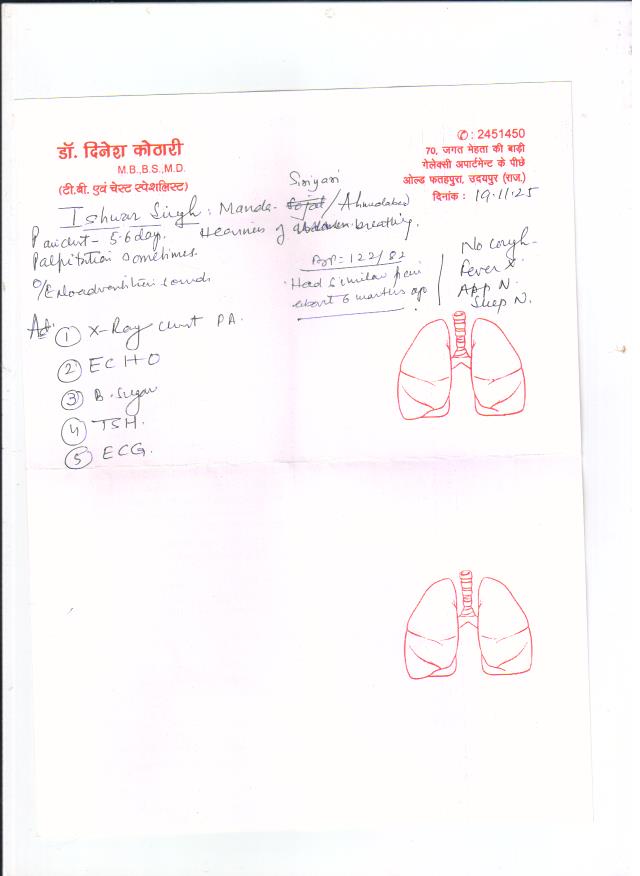 डॉ. दिनेश कोठारी
M.B.,B.S.,M.D.
(टी.बी. एवं चेस्ट स्पेशलिस्ट)
✆ : 2451450
70, जगत मेहता की बाड़ी
गेलेक्सी अपार्टमेन्ट के पीछे
ओल्ड फतहपुरा, उदयपुर (राज.)
दिनांक : 19.11.25
Siriyari
Ishwar Singh : Manda - / Ahmedabad
Pain chest - 5-6 day. Heaviness of breathing.
Palpitation sometimes.
O/E No adventitious sounds
BP = 122/82
Had similar pain
about 6 months ago
No cough -
Fever X
App N.
Sleep N.
Ad:
① X-Ray Chest PA.
② ECHO
③ B. Sugar
④ TSH.
⑤ ECG.